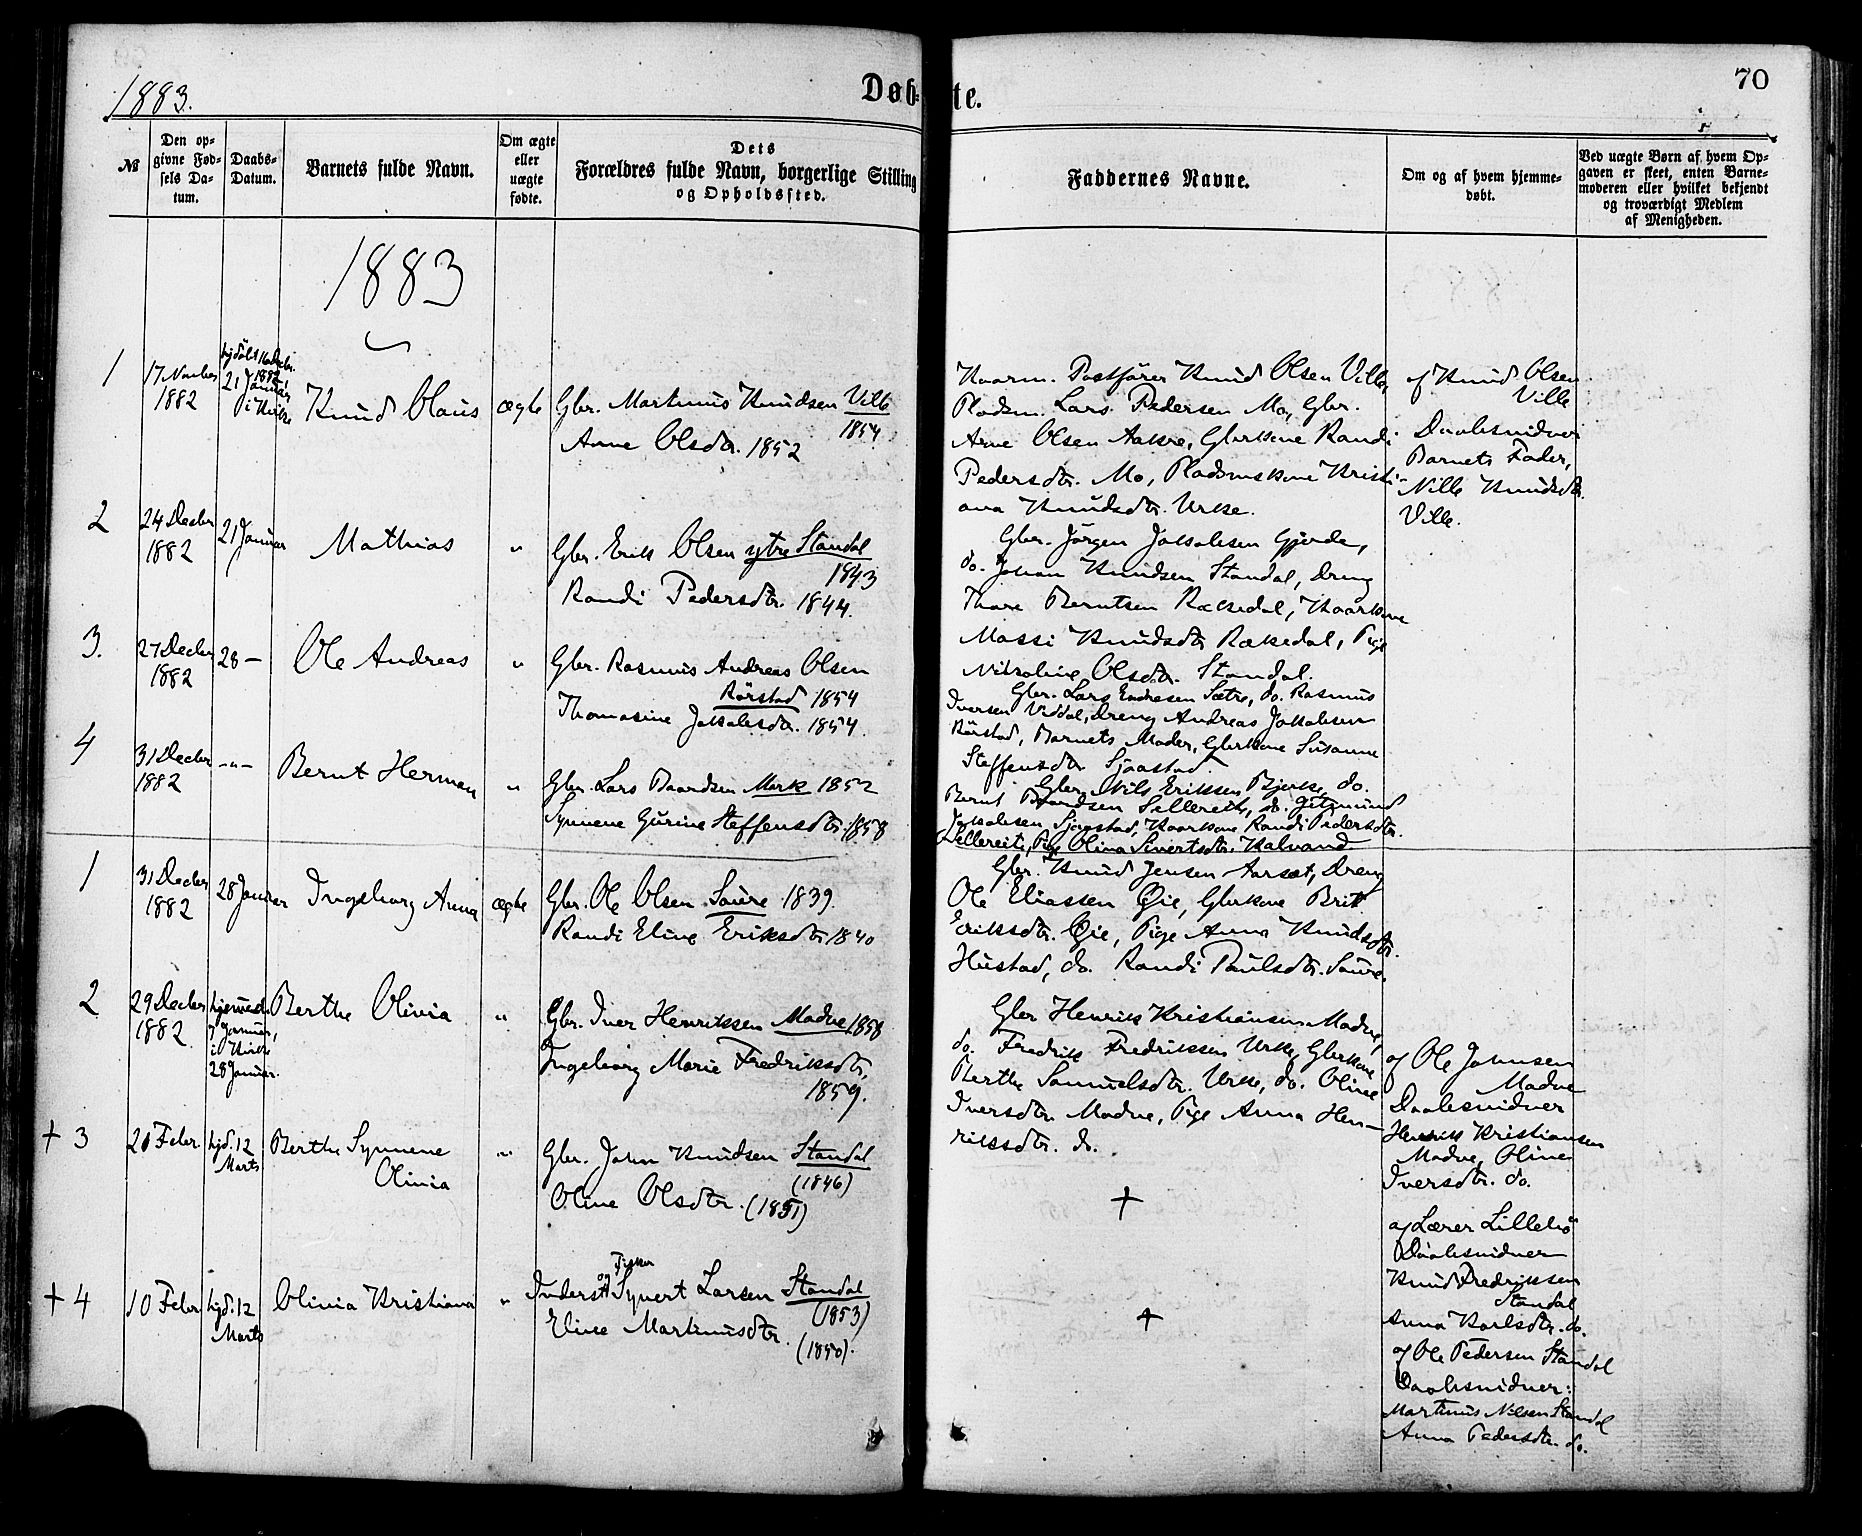 1883.
Døb-te.
70
№
Den op-
givne Fød-
sels Da-
tum.
Daabs-
Datum.
Barnets fulde Navn.
Om ægte
eller
uægte
fødte.
Dets
Forældres fulde Navn, borgerlige Stilling
og Opholdssted.
Faddernes Navne.
Om og af hvem hjemme-
døbt.
Ved uægte Børn af hvem Op-
gaven er skeet, enten Barne-
moderen eller hvilket bekjendt
og troværdigt Medlem
af Menigheden.
1883
1
17 Novber
1882
hjdøbt 16 Decbr.
1882,
21 Januar
i Kirke
Knud Olaus
ægte
Gbr. Martinus Knudsen Ville
1854
Anne Olsdtr. 1852
Kaarm. Postfører Knud Olsen Ville,
Pladsm. Lars Pedersen Mo, Gbr.
Arne Olsen Aakre, Gbrkone Randi
Pedersdtr. Mo, Pladsmskone Kristi-
ana Knudsdtr. Urke.
af Knud Olsen
Ville
Daabsvidner
Barnets Fader,
Nille Knudsdtr.
Ville.
2
24 Decbr
1882
21 Januar
Mathias
"
Gbr. Erik Olsen ytre Standal
1843
Randi Pedersdtr. 1844.
Gbr. Jørgen Jakobsen Gjerde,
do. Johan Knudsen Standal, Dreng
Thore Berntsen Rækedal, Kaarkone
Massi Knudsdtr Rækedal, Pige
Nikoline Olsdtr. Standal.
3.
27 Decbr
1882
28 —
Ole Andreas
"
Gbr. Rasmus Andreas Olsen
Rørstad 1854
Thomasine Jakobsdtr. 1854.
Gbr. Lars Endresen Sætre, do. Rasmus
Iversen Viddal, Dreng Andreas Jakobsen
Rørstad, Barnets Moder, Gbrkone Susanne
Steffensdtr Sjaastad.
4
31 Decbr
1882
-"-
Bernt Herman
"
Gbr. Lars Baardsen Mork 1852
Synnene Gurine Steffensdtr. 1858
Gbr. Nils Eriksen Bjerke, do.
Bernt Baardsen Sellereite, do. Gitmund
Jakobsen Sjaastad, Kaarkone Randi Pedersdtr.
Sellereite, Pige Olina Sivertsdtr. Kalvand
1
31 Decbr
1882
28 Januar
Ingeborg Anna
ægte
Gbr. Ole Olsen Saure 1839.
Randi Eline Eriksdtr 1840
Gbr. Knud Jensen Aarsæt, Dreng
Ole Eliassen Øie, Gbrkone Brit
Eriksdtr. Øie, Pige Anna Knudsdtr.
Hustad, do. Randi Paulsdtr. Saure.
2
29 Decbr
1882
hjemmed.
7 Januar,
i Kirke
28 Januar.
Berthe Olivia
"
Gbr. Iver Henrikssen Madve 1858
Ingeborg Marie Fredriksdtr,
1859.
Gbr Henrik Kristiansen Madve,
do. Fredrik Fredrikssen Urke, Gbrkone
Berthe Samuelsdtr. Urke, do. Oline
Iversdtr. Madve, Pige Anna Hen-
riksdtr. do.
af Ole Johnsen
Madve
Daabsvidner
Henrik Kristiansen
Madve, Oline
Iversdtr. do.
+ 3
20 Febr
hjd. 12
Marts
Berthe Synnene
Olivia
"
Gbr. John Knudsen Standal
(1846)
Oline Olsdtr. (1851)
+
af Lærer Lillebø
Daabsvidner
Knud Fredriksen
Standal
Anna Karlsdtr. do.
+ 4
10 Febr
hjd. 12
Marts
Olivia Kristiana
"
Inderst og Fisker Syvert Larsen Standal
(1853)
Eline Martinusdtr.
(1850).
+
af Ole Pedersen Standal
Daabsvidner:
Martinus Nilsen Standal
Anna Pedersdtr. do.